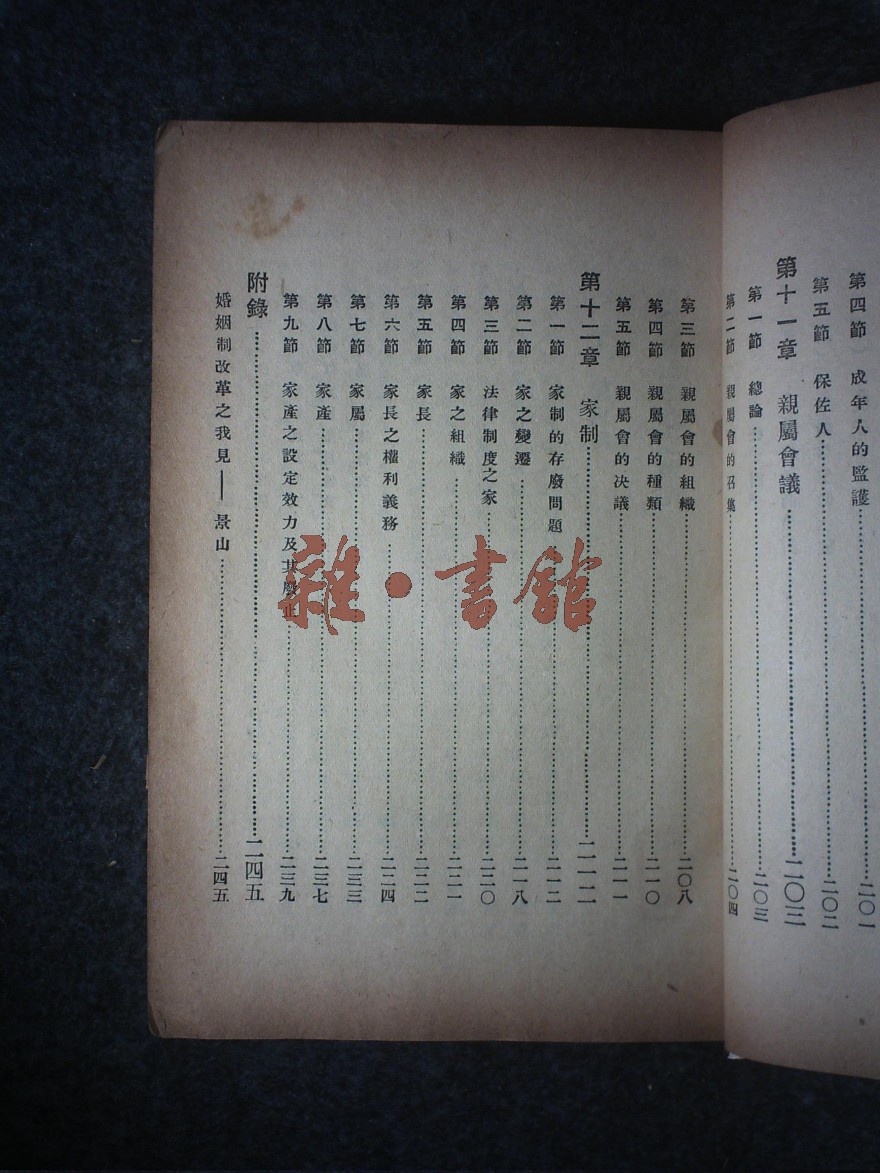 第四節 成年人的監護……二〇一
第五節 保佐人……二〇二
第十一章 親屬會議……二〇三
第一節 總論……二〇三
第二節 親屬會的召集……二〇四
第三節 親屬會的組織……二〇八
第四節 親屬會的種類……二一〇
第五節 親屬會的決議……二一一
第十二章 家制……二一二
第一節 家制的存廢問題……二一二
第二節 家之變遷……二一八
第三節 法律制度之家……二二〇
第四節 家之組織……二二一
第五節 家長……二二二
第六節 家長之權利義務……二二四
第七節 家屬……二三三
第八節 家產……二三七
第九節 家產之設定效力及其廢止……二三九
附錄……二四五
婚姻制改革之我見——景山……二四五
雜·書館